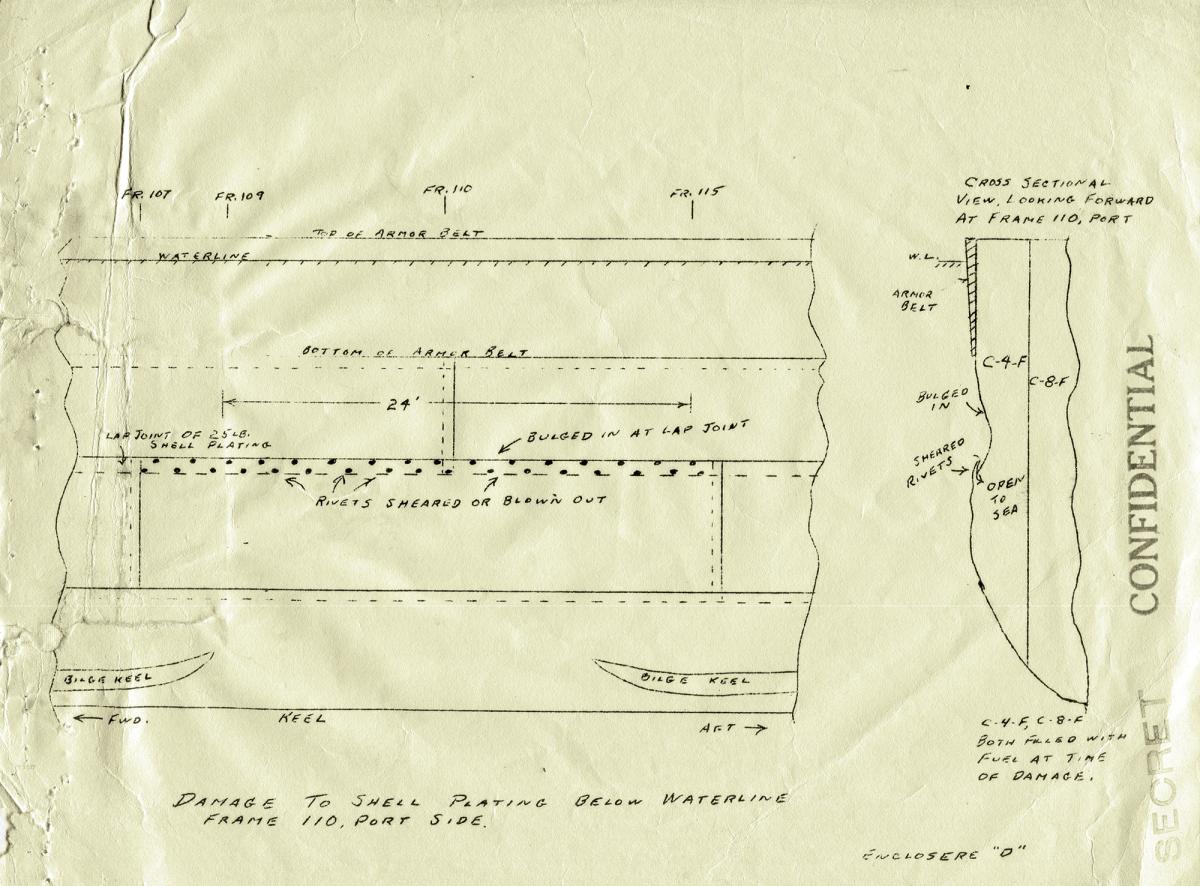 FR. 107
FR. 109
FR. 110
FR. 115
TOP OF ARMOR BELT
WATERLINE
BOTTOM OF ARMOR BELT
24'
LAP JOINT OF 25 LB.
SHELL PLATING
BULGED IN AT LAP JOINT
RIVETS SHEARED OR BLOWN OUT
BILGE KEEL
BILGE KEEL
← FWD.
KEEL
AFT →
DAMAGE TO SHELL PLATING BELOW WATERLINE
FRAME 110, PORT SIDE.
CROSS SECTIONAL
VIEW, LOOKING FORWARD
AT FRAME 110, PORT
W.L.
ARMOR
BELT
C-4-F
C-8-F
BULGED
IN
SHEARED
RIVETS
OPEN
TO
SEA
C-4-F, C-8-F
BOTH FILLED WITH
FUEL AT TIME
OF DAMAGE.
ENCLOSERE "D"
CONFIDENTIAL
SECRET